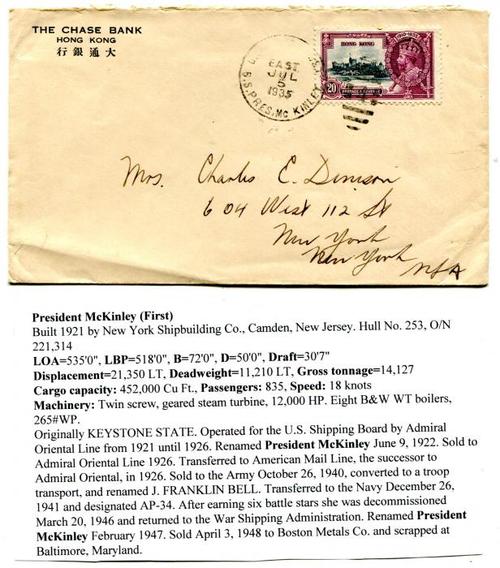 THE CHASE BANK
HONG KONG
行銀通大
EAST
JUL
5
1935
S.S. PRES. MC KINLEY
HONG KONG
20
POSTAGE & REVENUE
Mrs. Charles E. Denison
604 West 112 St
New York
New York
USA
President McKinley (First)
Built 1921 by New York Shipbuilding Co., Camden, New Jersey. Hull No. 253, O/N
221,314
LOA=535'0", LBP=518'0", B=72'0", D=50'0", Draft=30'7"
Displacement=21,350 LT, Deadweight=11,210 LT, Gross tonnage=14,127
Cargo capacity: 452,000 Cu Ft., Passengers: 835, Speed: 18 knots
Machinery: Twin screw, geared steam turbine, 12,000 HP. Eight B&W WT boilers,
265#WP.
Originally KEYSTONE STATE. Operated for the U.S. Shipping Board by Admiral
Oriental Line from 1921 until 1926. Renamed President McKinley June 9, 1922. Sold to
Admiral Oriental Line 1926. Transferred to American Mail Line, the successor to
Admiral Oriental, in 1926. Sold to the Army October 26, 1940, converted to a troop
transport, and renamed J. FRANKLIN BELL. Transferred to the Navy December 26,
1941 and designated AP-34. After earning six battle stars she was decommissioned
March 20, 1946 and returned to the War Shipping Administration. Renamed President
McKinley February 1947. Sold April 3, 1948 to Boston Metals Co. and scrapped at
Baltimore, Maryland.